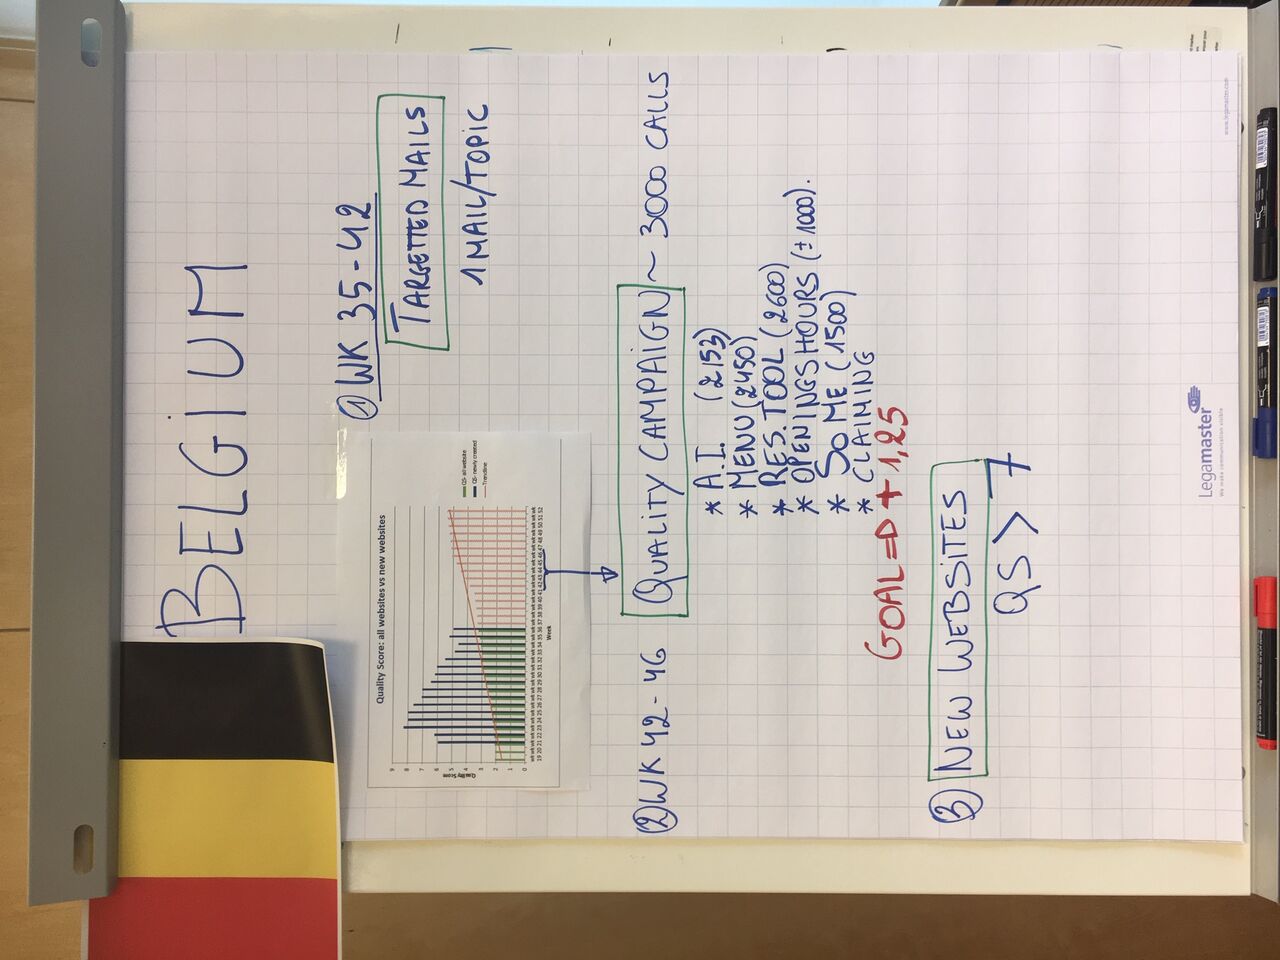 BELGIUM
① WK 35-42
TARGETTED MAILS
1 MAIL/TOPIC
Quality Score: all websites vs new websites
Quality Score
9
8
7
6
5
4
3
2
1
0
wk wk wk wk wk wk wk wk wk wk wk wk wk wk wk wk wk wk wk wk wk wk wk wk wk wk wk wk wk wk wk wk wk wk
19 20 21 22 23 24 25 26 27 28 29 30 31 32 33 34 35 36 37 38 39 40 41 42 43 44 45 46 47 48 49 50 51 52
Week
QS- all website
QS- newly created
Trendline
② WK 42-46 QUALITY CAMPAIGN ~ 3000 CALLS
* A.I. (2153)
* MENU (2450)
* RES. TOOL (2600)
* OPENINGSHOURS (± 1000).
* SOME (1500)
* CLAIMING
GOAL = D + 1,25
③ NEW WEBSITES
QS > 7
Legamaster
We make communication visible
www.legamaster.com